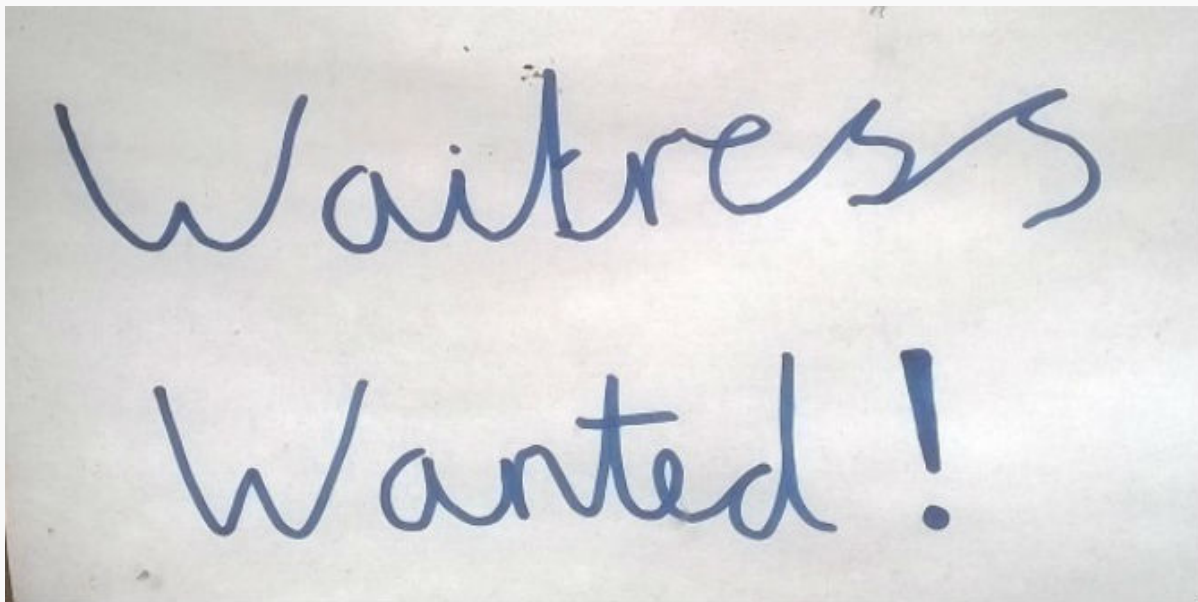 Waitress
Wanted!